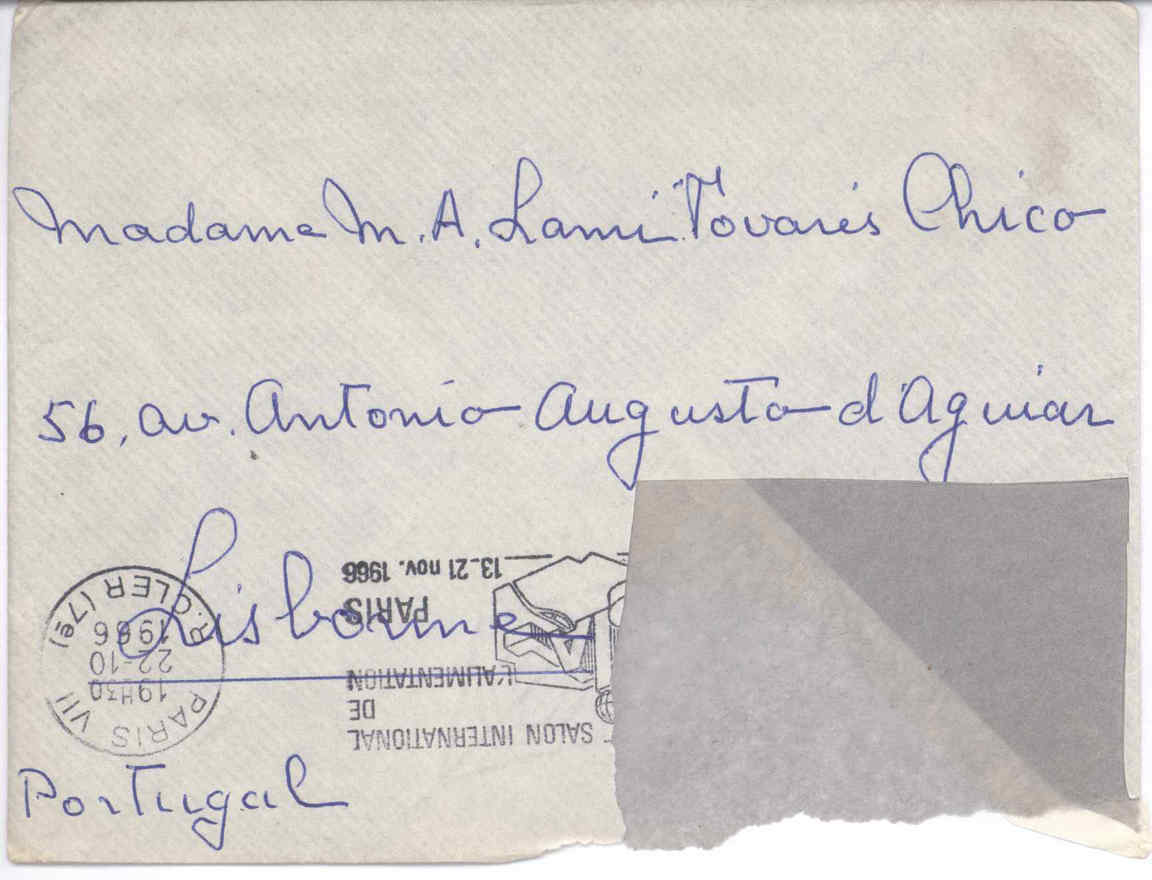 Madame M. A. Lami Tovarès Chico
56, av. Antonio Augusto d'Aguiar
Lisbonne
Portugal
PARIS VII
19H30
22-10
1966
R. CLER (7e)
SALON INTERNATIONAL
DE
L'ALIMENTATION
PARIS
13_21 nov. 1966